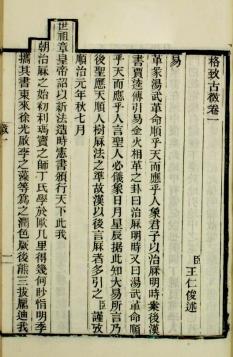 格致古微卷一
臣王仁俊述
易
革象湯武革命順乎天而應乎人象君子以治厤明時案後漢
書賈逵傳引易金火相革之卦曰治厤明時又曰湯武革命順
乎天而應乎人言聖人必儀象日月星辰據此知大易所言乃
後聖應天順人樹厤法之準故漢以後言厤者多引之臣謹攷
順治元年秋七月
世祖章皇帝詔以新法造時憲書頒行天下此我
朝治厤之始初利瑪竇之師丁氏學於歐几里得幾何妙恉明季
攜其書東來徐光啟李之藻等為之潤色厥後熊三拔